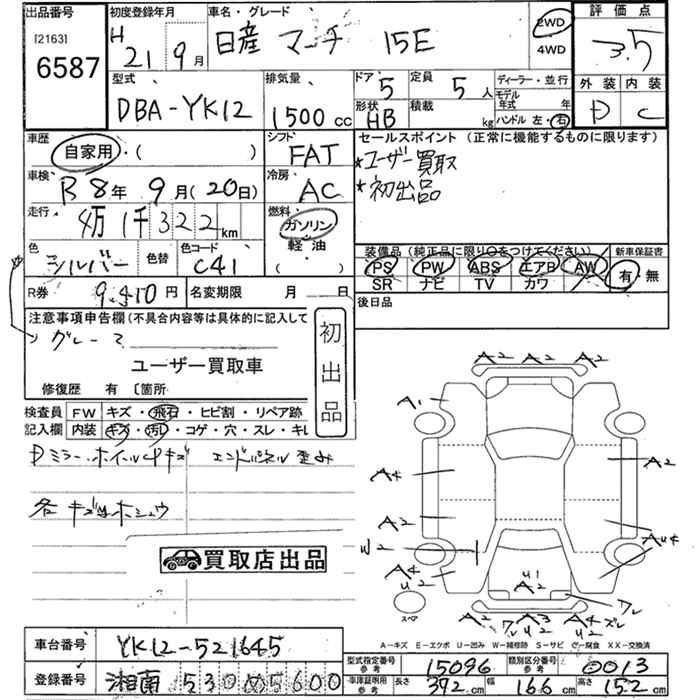 出品番号 初度登録年月 車名・グレード 評価点
[2163] H 2WD
6587 21年 9月 日産 マーチ 15E 4WD 3.5
型式 排気量 ドア 5 定員 5人 ディーラー・並行 外装 内装
モデル年式 年
DBA-YK12 1500cc 形状 HB 積載 kg ハンドル 左・右 D C
車歴 シフト セールスポイント(正常に機能するものに限ります)
自家用・( ) FAT *ユーザー買取
車検 冷房 *初出品
R8年 9月(20日) AC
走行 燃料
4万1千322km ガソリン
色 色替 色コード 軽油 装備品(純正品に限り○をつけてください) 新車保証書
シルバー C41 ( ) PS PW ABS エアB AW 有 無
SR ナビ TV カワ
R券 9,510円 名変期限 月 日 後日品
注意事項申告欄(不具合内容等は具体的に記入して
グレー 初出品
ユーザー買取車
修復歴 有〔箇所
検査員 FW キズ・飛石・ヒビ割・リペア跡
記入欄 内装 キズ・汚レ・コゲ・穴・スレ・キレ
Dミラー ホイルキズ エンドパネル歪み
各キズ凹ホシュウ
買取店出品
A2 A2 A2
A1
A4 A2
A2 AU4
W2
A4 U2 U1 A2 A4 U2
ワレ
A2 U2 A3 U2 A4 ズレ ワレ
スペア
A-キズ E-エクボ U-凹み W-補修跡 S-サビ C-腐食 XX-交換済
車台番号 YK12-521645
型式指定番号 参考 15096 類別区分番号 参考 0013
登録番号 湘南 530
車庫証明用 参考 長さ 392cm 幅 166cm 高さ 152cm